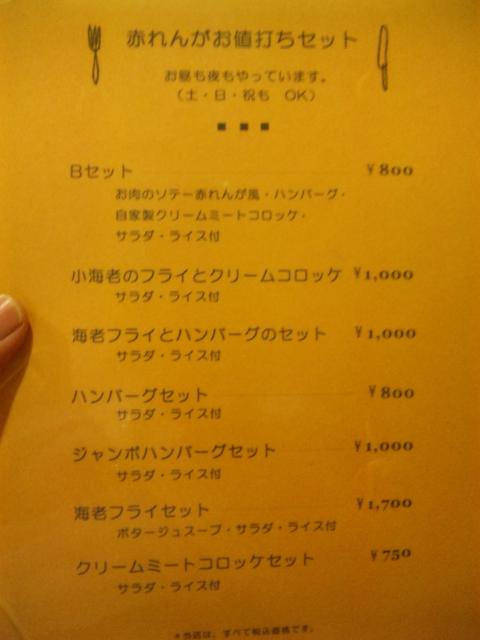 赤れんがお値打ちセット
お昼も夜もやっています。
（土・日・祝も　OK）
■ ■ ■
Bセット ¥800
お肉のソテー赤れんが風・ハンバーグ・
自家製クリームミートコロッケ・
サラダ・ライス付
小海老のフライとクリームコロッケ ¥1,000
サラダ・ライス付
海老フライとハンバーグのセット ¥1,000
サラダ・ライス付
ハンバーグセット ¥800
サラダ・ライス付
ジャンボハンバーグセット ¥1,000
サラダ・ライス付
海老フライセット ¥1,700
ポタージュスープ・サラダ・ライス付
クリームミートコロッケセット ¥750
サラダ・ライス付
＊当店は、すべて税込価格です。